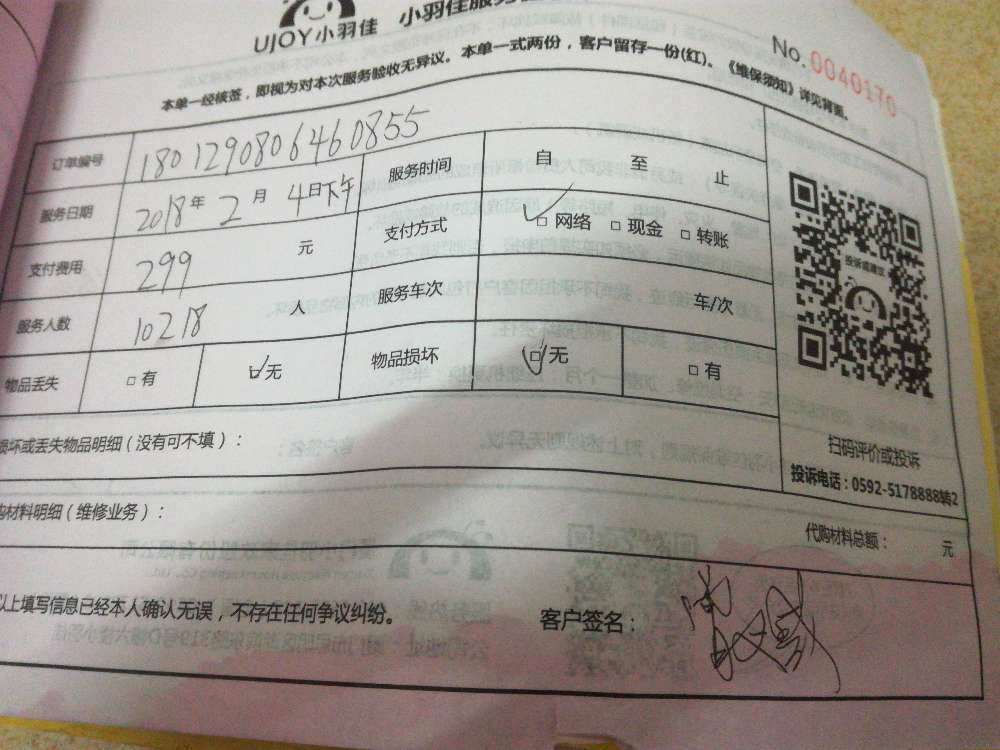 UJOY小羽佳 小羽佳服务
No.0040170
本单一经核签，即视为对本次服务验收无异议。本单一式两份，客户留存一份(红)。《维保须知》详见背面。
订单编号 1801290806460855
服务日期 2018年 2月 4日下午 服务时间 自 至 止
支付费用 299 元 支付方式 □网络 □现金 □转账
服务人数 10218 人 服务车次 车/次
物品丢失 □有 □无 物品损坏 □无 □有
投诉或建议
扫码评价或投诉
投诉电话：0592-5178888转2
损坏或丢失物品明细（没有可不填）：
购材料明细（维修业务）：
代购材料总额： 元
以上填写信息已经本人确认无误，不存在任何争议纠纷。 客户签名：